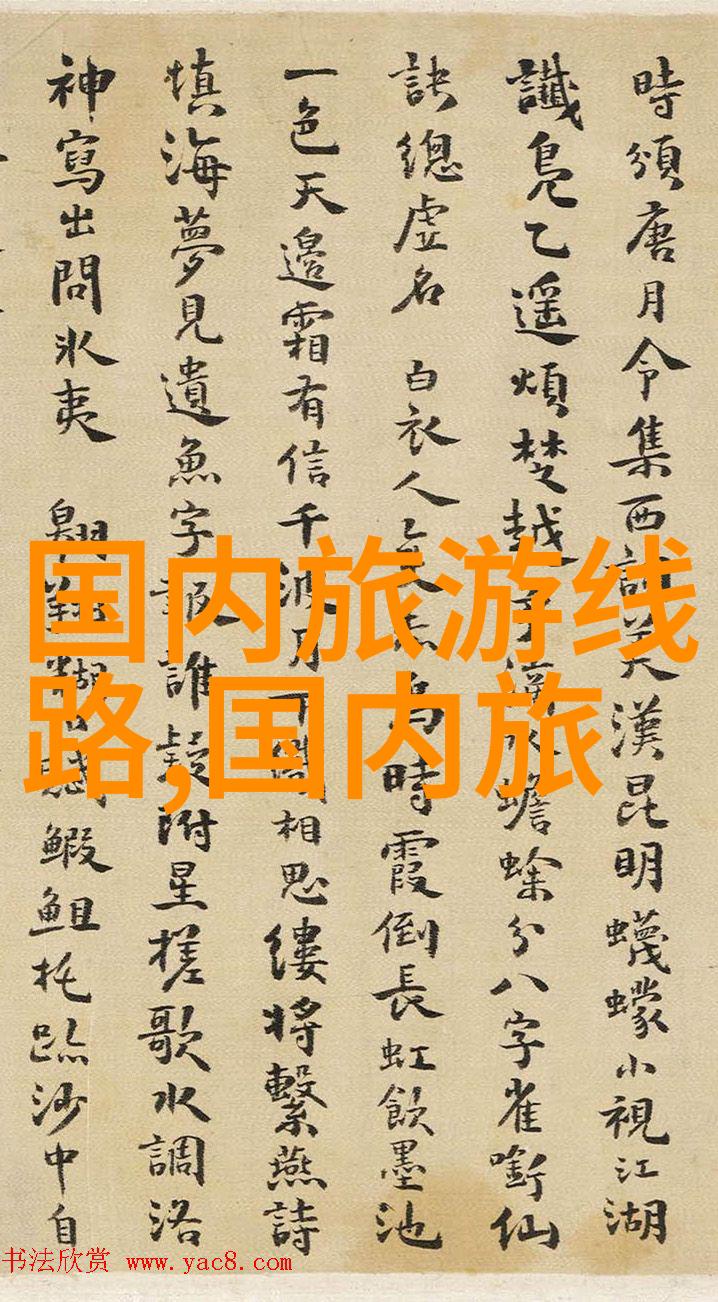 時頒唐月令集西美漢昆明蠛蠓小視江湖
讖鳧乙遥煩楚越子蟾蜍分八字雀銜仙
訣總虛名 白衣人為時霞倒長虹飲墨池
一色天邊霜有信千波月下相思縷將繫燕詩
填海夢見遺魚字報誰疑附星槎歌水調洛
神寫出問氷夷 翱翔賦鰕䱉托跡沙中自
国内旅游线
路,国内旅
书法欣赏 www.yac8.com